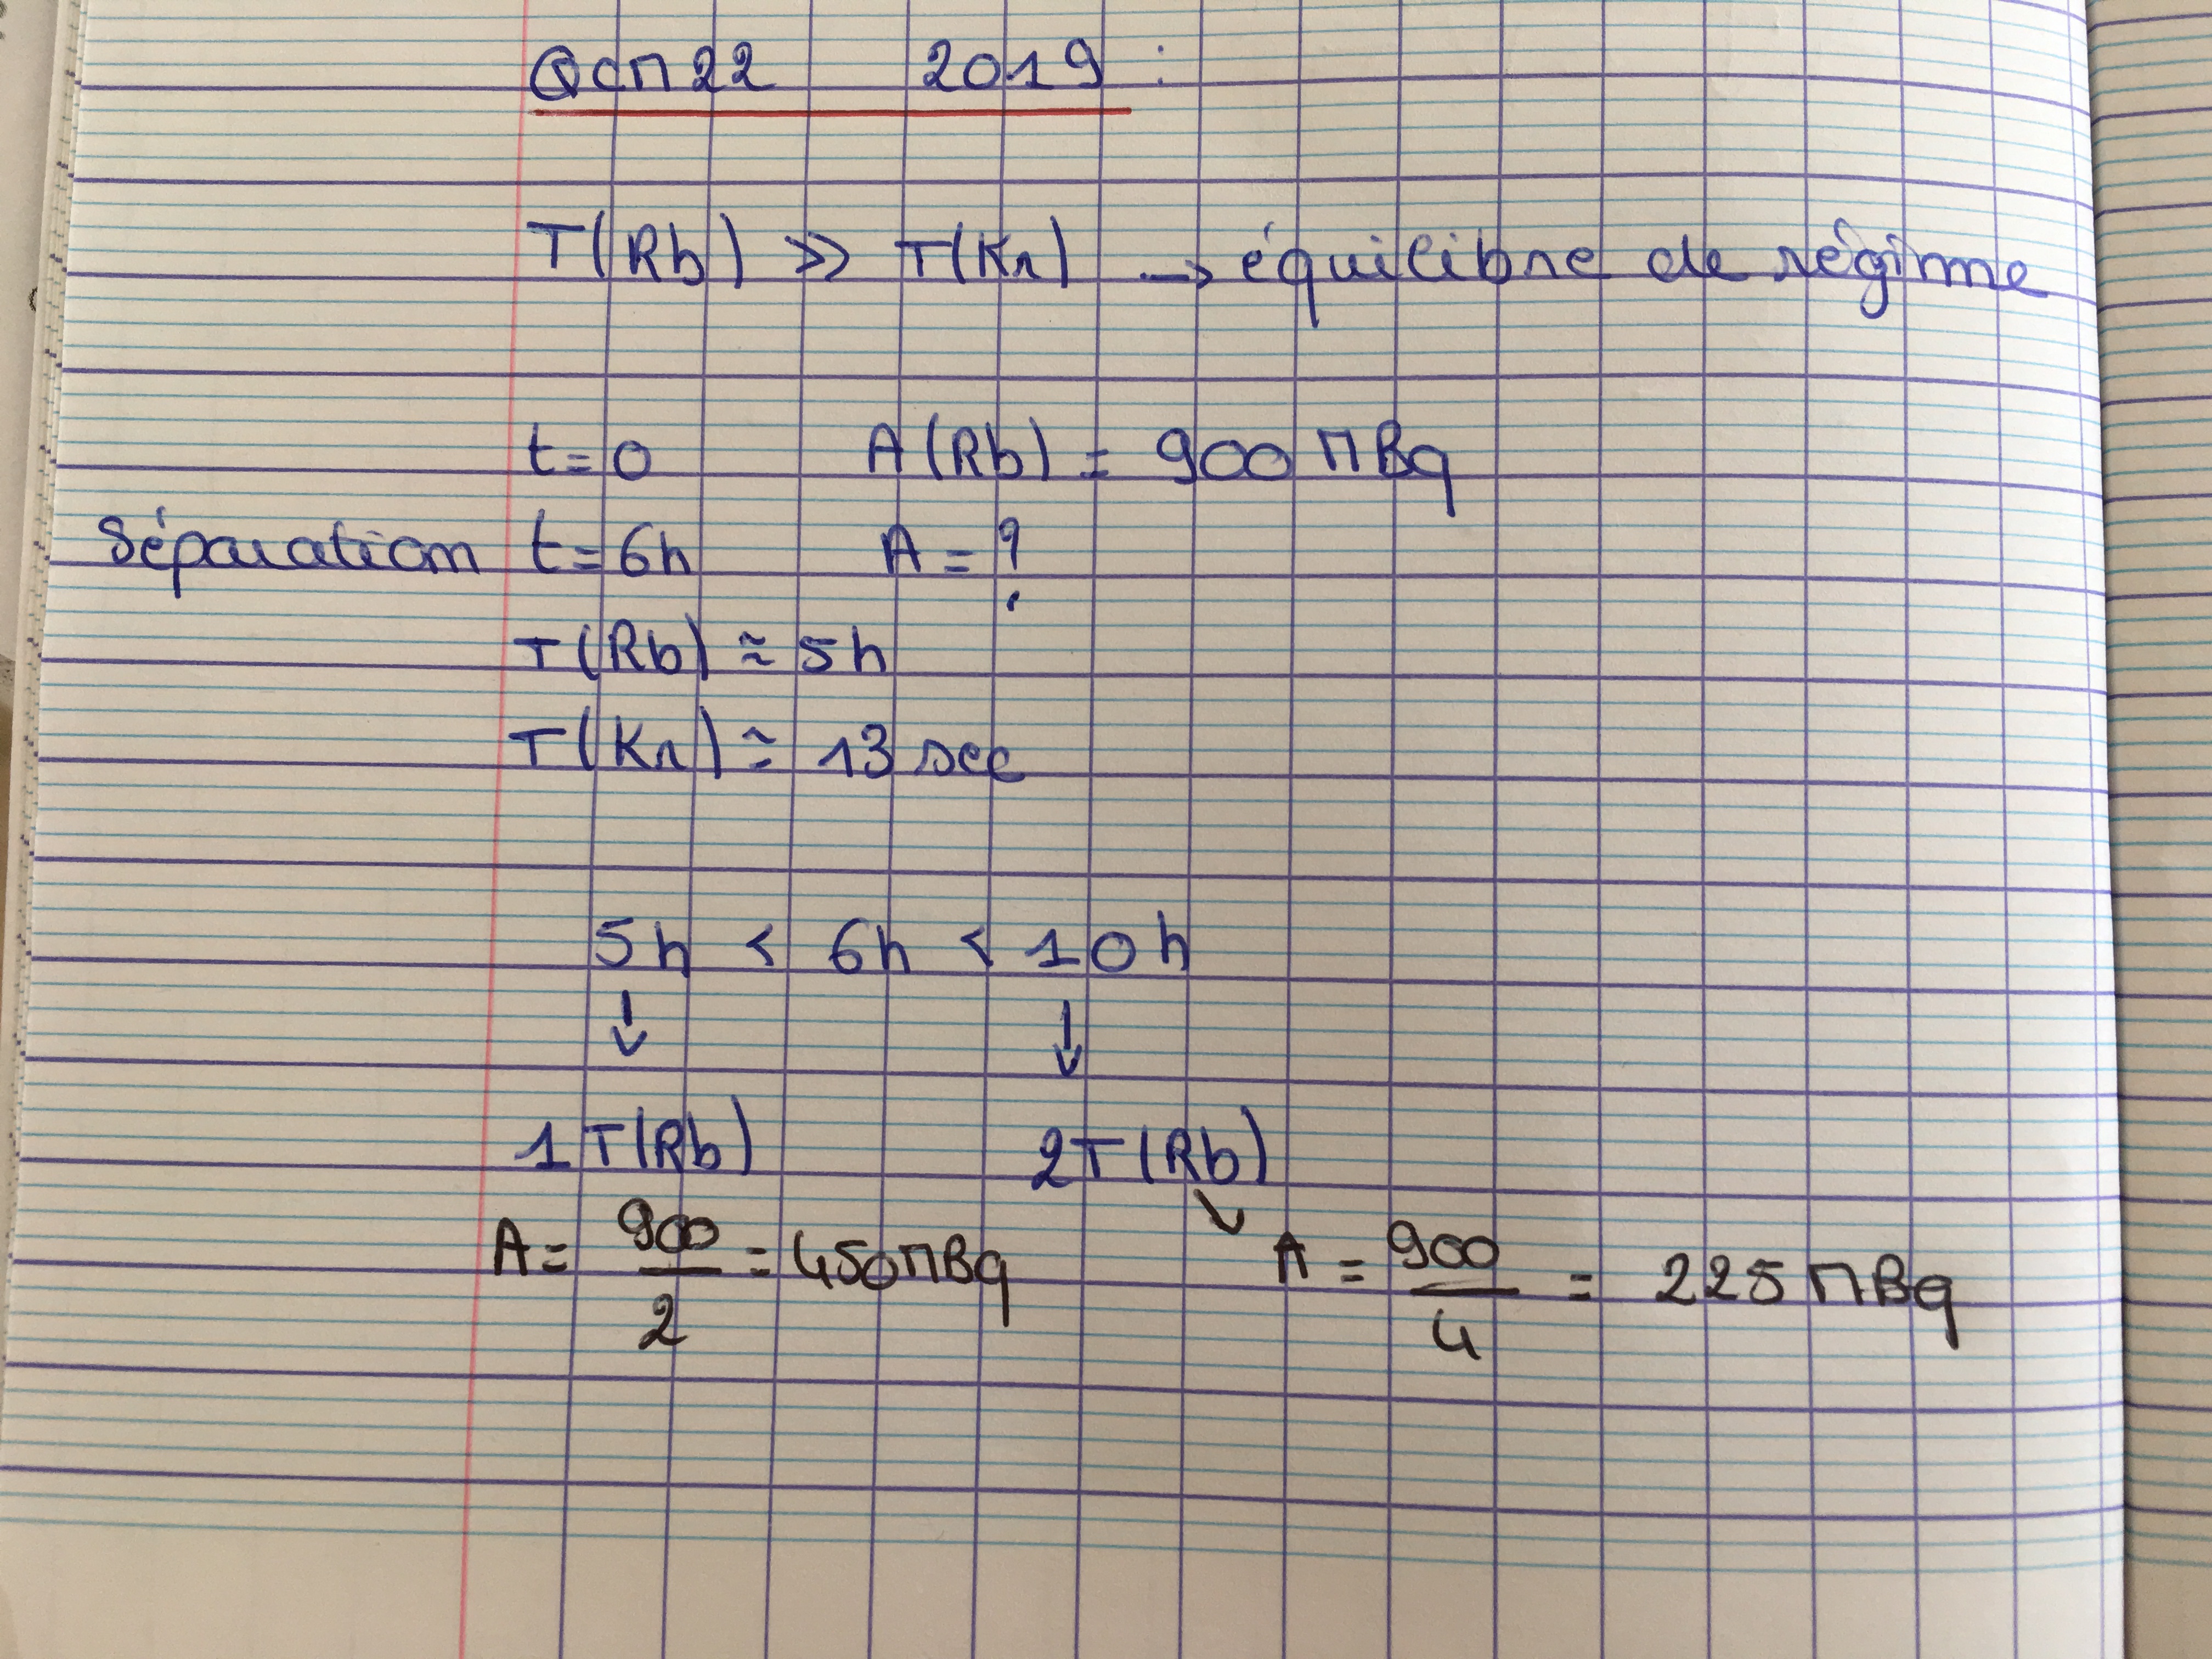 QCM 22 2019 :
T(Rb) >> T(Kr) → équilibre de régime
t=0 A(Rb) = 900 MBq
Séparation t=6h A = ?
T(Rb) ≈ 5h
T(Kr) ≈ 13 sec
5h < 6h < 10h
↓ ↓
1T(Rb) 2T(Rb)
A = 900/2 = 450 MBq ↘ A = 900/4 = 225 MBq